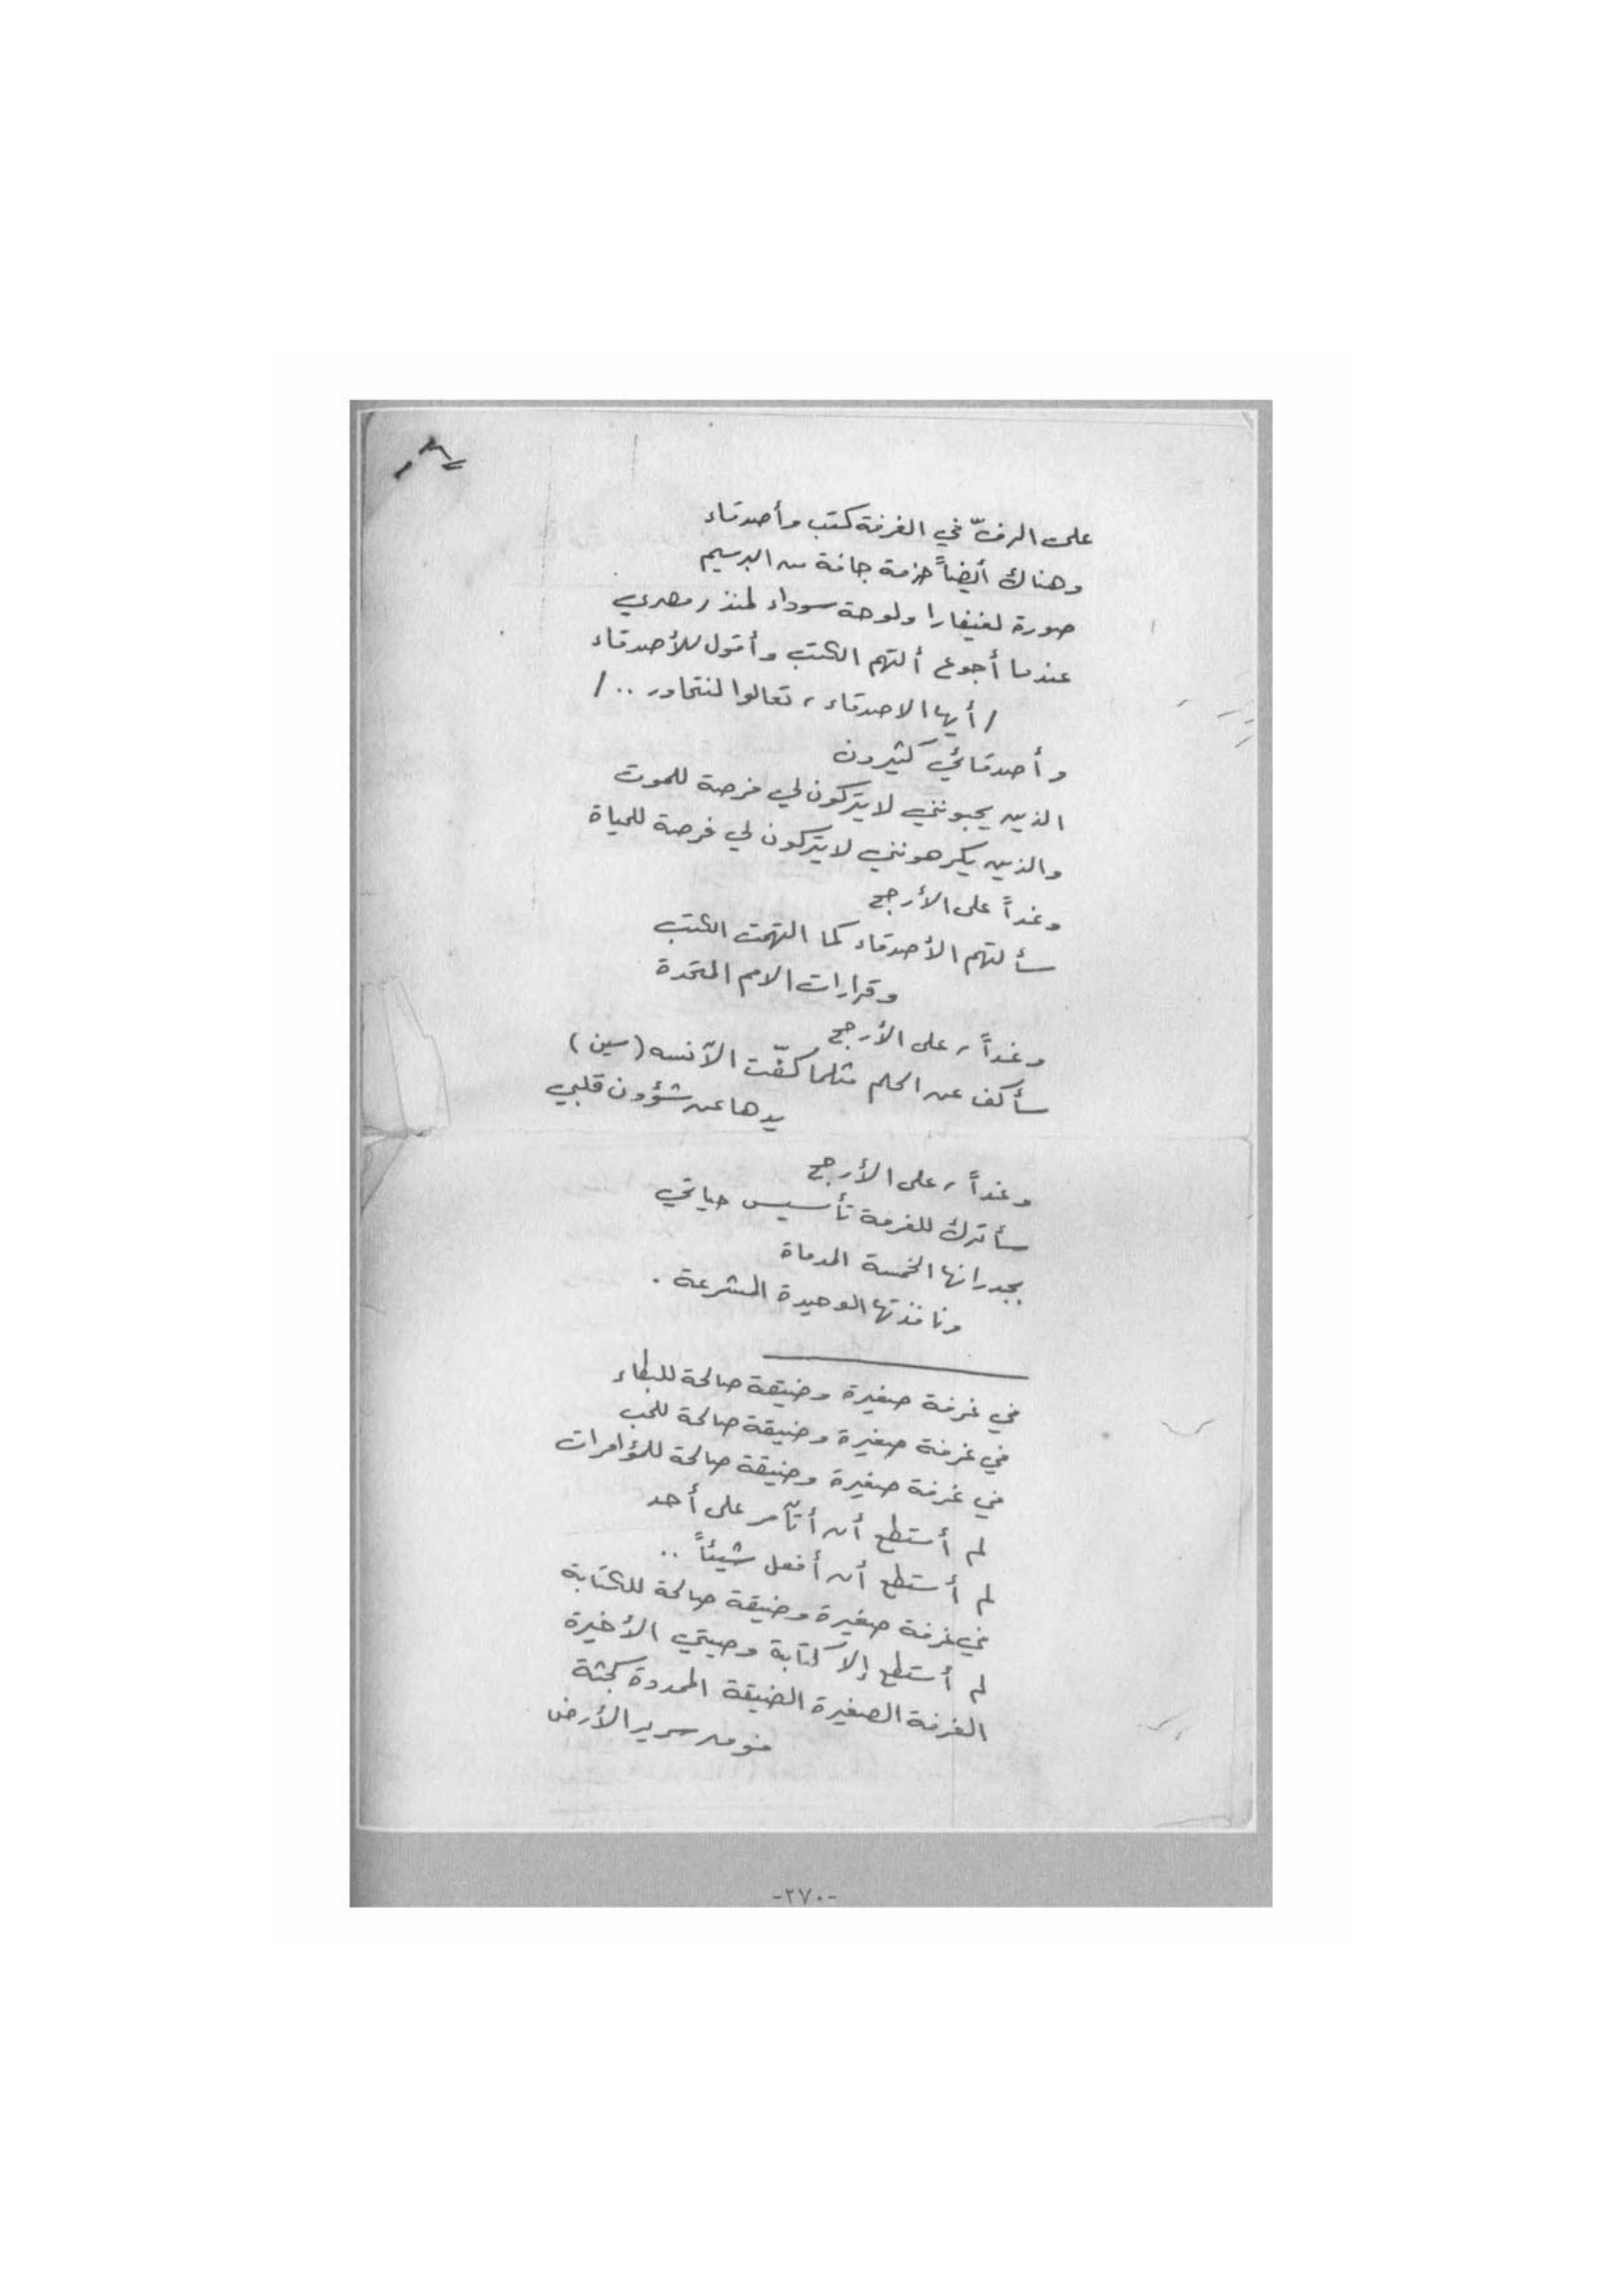 على الرفّ في الغرفة كتب وأصدقاء
وهناك أيضاً حزمة جافة من البرسيم
صورة لغيفارا ولوحة سوداء لمنذر مصري
عندما أجوع ألتهم الكتب وأقول للأصدقاء
/ أيها الاصدقاء، تعالوا لنتحاور .. /
وأصدقائي كثيرون
الذين يحبونني لا يتركون لي فرصة للموت
والذين يكرهونني لا يتركون لي فرصة للحياة
وغداً على الأرجح
سألتهم الأصدقاء كما التهمت الكتب
وقرارات الامم المتحدة
وغداً، على الأرجح
سأكف عن الحلم مثلما كفّت الآنسه (سين)
يدها عن شؤون قلبي
وغداً، على الأرجح
سأترك للغرفة تأسيس حياتي
بجدرانها الخمسة المدماة
ونافذتها الوحيدة المشرعة .
في غرفة صغيرة وضيقة صالحة للبكاء
في غرفة صغيرة وضيقة صالحة للحب
في غرفة صغيرة وضيقة صالحة للمؤامرات
لم أستطع أن أتآمر على أحد
لم أستطع أن أفعل شيئاً ..
في غرفة صغيرة وضيقة صالحة للكتابة
لم أستطع إلا كتابة وصيتي الأخيرة
الغرفة الصغيرة الضيقة الممدودة كجثة
فوق سرير الأرض
-٢٧٠-